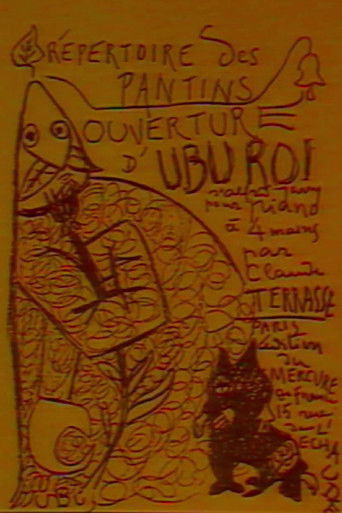 RÉPERTOIRE DES
PANTINS
OUVERTURE
D'UBU ROI
pour piano
à 4 mains
par
Claude
TERRASSE
PARIS
du
MERCURE
de France
15 rue
de L'
ECHAUDÉ
UBU